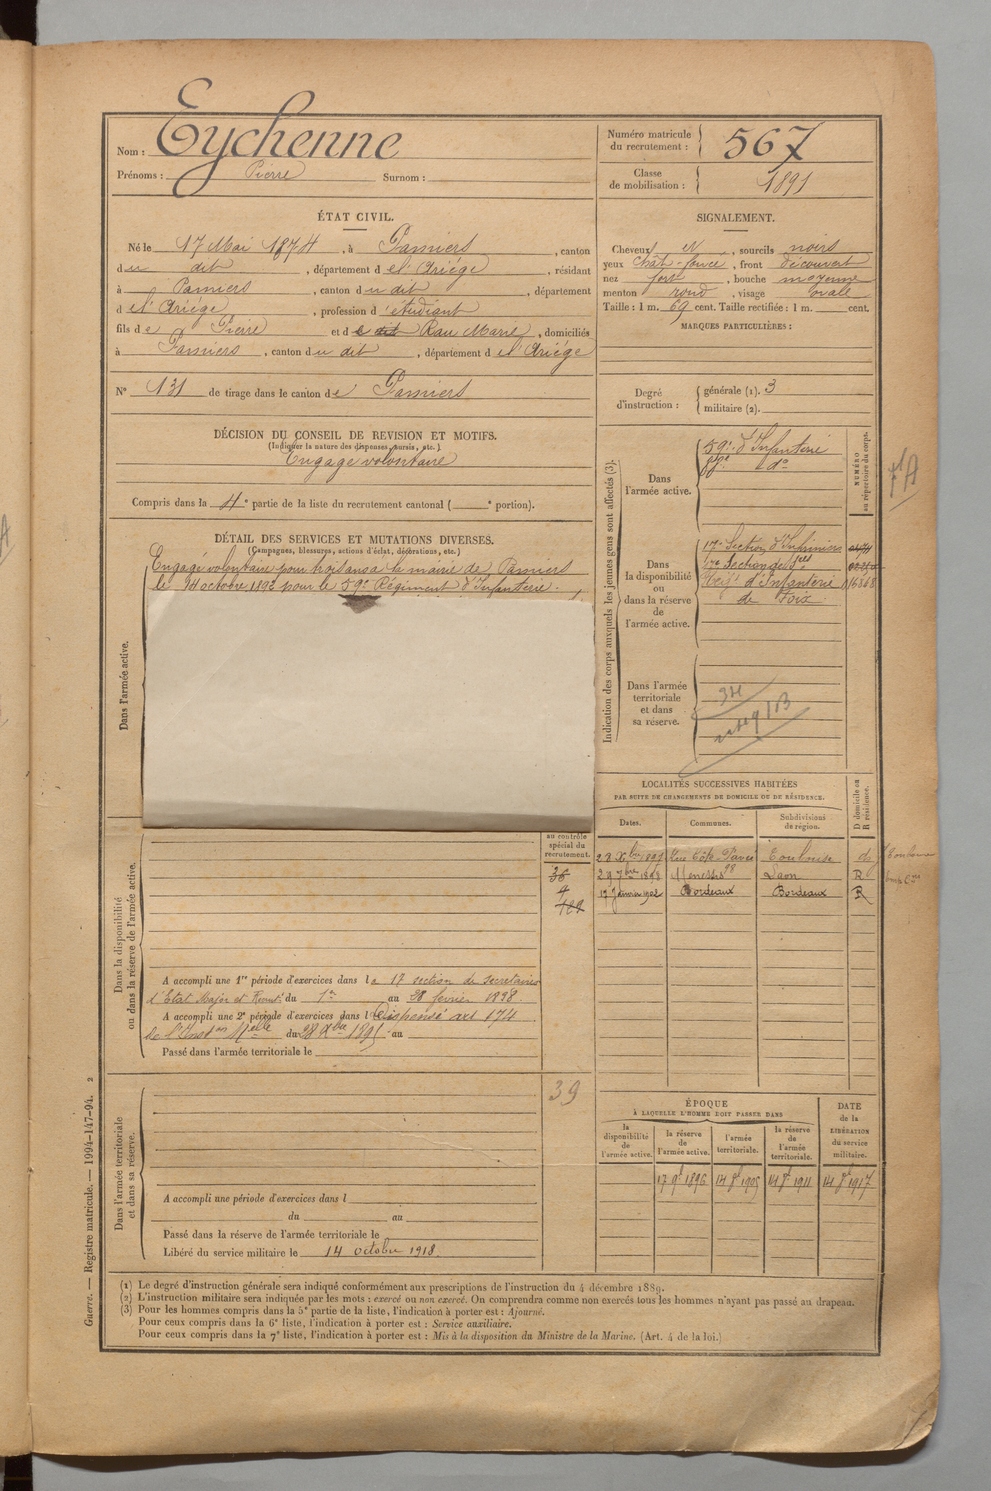 Nom : Eychenne
Prénoms : Pierre Surnom :
Numéro matricule du recrutement : 567
Classe de mobilisation : 1891
ÉTAT CIVIL.
Né le 17 Mai 1874, à Pamiers, canton
du dit, département de l'Ariége, résidant
à Pamiers, canton du dit, département
de l'Ariége, profession d'étudiant
fils de Pierre et de Rau Marie, domiciliés
à Pamiers, canton du dit, département de l'Ariége
N° 131 de tirage dans le canton de Pamiers
SIGNALEMENT.
Cheveux et, sourcils noirs
yeux chât-foncé, front découvert
nez fort, bouche moyenne
menton rond, visage ovale
Taille : 1 m. 69 cent. Taille rectifiée : 1 m. cent.
MARQUES PARTICULIÈRES :
Degré d'instruction :
générale (1). 3
militaire (2).
DÉCISION DU CONSEIL DE REVISION ET MOTIFS.
(Indiquer la nature des dispenses, sursis, etc.)
Engagé volontaire
Compris dans la 4e partie de la liste du recrutement cantonal ( e portion).
DÉTAIL DES SERVICES ET MUTATIONS DIVERSES.
(Campagnes, blessures, actions d'éclat, décorations, etc.)
Engagé volontaire pour trois ans à la mairie de Pamiers
le 14 octobre 1892 pour le 59e Régiment d'Infanterie.
Dans l'armée active.
Indication des corps auxquels les jeunes gens sont affectés (3).
NUMÉRO au répertoire du corps.
Dans l'armée active.
59e d'Infanterie
do
Dans la disponibilité ou dans la réserve de l'armée active.
17e Section d'Infirmiers
17e Section de
Régt d'Infanterie
de Foix
Dans l'armée territoriale et dans sa réserve.
LOCALITÉS SUCCESSIVES HABITÉES
PAR SUITE DE CHANGEMENTS DE DOMICILE OU DE RÉSIDENCE.
D domicile ou R résidence.
Dates. Communes. Subdivisions de région.
28 Xbre 1897 Rue Côte-Pavée Toulouse
29 7bre 1898 Laon R
17 Janvier 1902 Bordeaux Bordeaux R
au contrôle spécial du recrutement.
Dans la disponibilité ou dans la réserve de l'armée active.
A accompli une 1re période d'exercices dans la 17 section de secretaires
d'Etat Major et Recrut. du 1er au 28 fevrier 1898
A accompli une 2e période d'exercices dans l Dispensé art 174
de l'Inston Melle du 28 Xbre 1895 au
Passé dans l'armée territoriale le
39
Dans l'armée territoriale et dans sa réserve.
A accompli une période d'exercices dans l
du au
Passé dans la réserve de l'armée territoriale le
Libéré du service militaire le 14 octobre 1918.
ÉPOQUE
À LAQUELLE L'HOMME DOIT PASSER DANS
la disponibilité de l'armée active.
la réserve de l'armée active.
l'armée territoriale.
la réserve de l'armée territoriale.
DATE de la LIBÉRATION du service militaire.
Guerre. — Registre matricule. — 1994-147-94. 2
(1) Le degré d'instruction générale sera indiqué conformément aux prescriptions de l'instruction du 4 décembre 1889.
(2) L'instruction militaire sera indiquée par les mots : exercé ou non exercé. On comprendra comme non exercés tous les hommes n'ayant pas passé au drapeau.
(3) Pour les hommes compris dans la 5e partie de la liste, l'indication à porter est : Ajourné.
Pour ceux compris dans la 6e liste, l'indication à porter est : Service auxiliaire.
Pour ceux compris dans la 7e liste, l'indication à porter est : Mis à la disposition du Ministre de la Marine. (Art. 4 de la loi.)